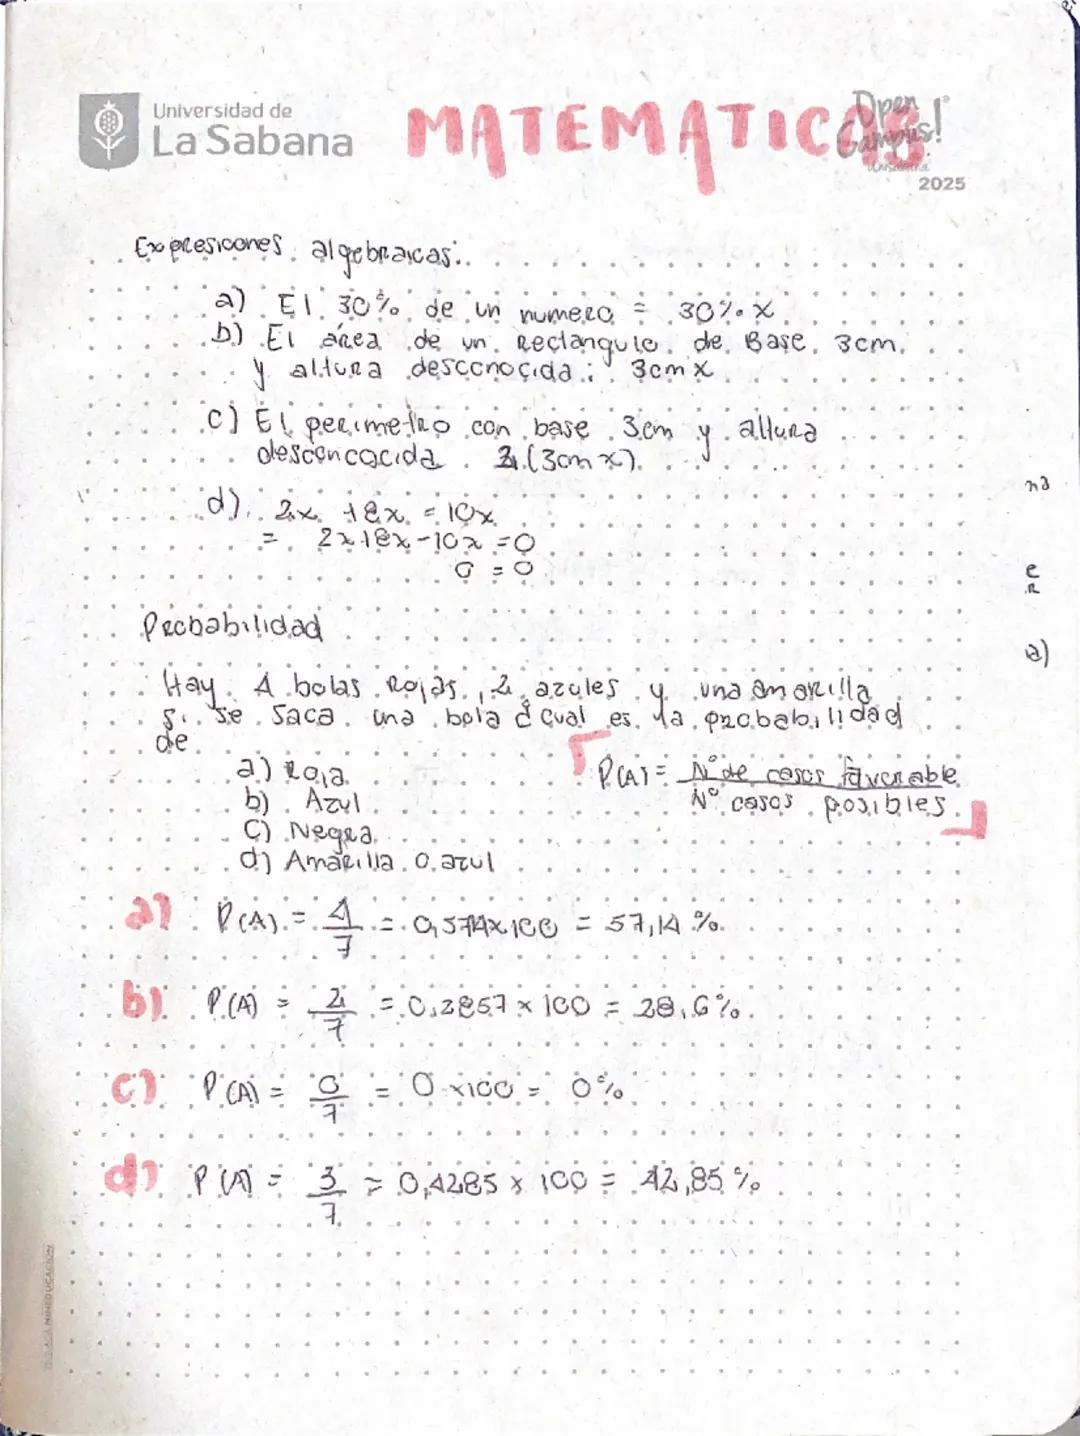 Universidad de
La Sabana
MATEMATICAS
Open
Campus!
Unisabana
2025
Expresiones algebraicas:
a) El 30% de un numero = 30% x
b) El área de un Rectangulo de Base 3cm
y altura desconocida : 3cm x
c) El perimetro con base 3cm y altura
desconocida 2(3cm x)
d) 2x + 8x = 10x
= 2x+8x-10x = 0
0 = 0
Probabilidad
Hay 4 bolas Rojas, 2 azules y una amarilla
si se saca una bola ¿cual es la probabilidad
de
a) Roja
b) Azul
c) Negra
d) Amarilla o azul
P(A) = N° de casos favorable
N° casos posibles
a) P(A) = 4/7 = 0,574x100 = 57,14 %
b) P(A) = 2/7 = 0,2857 x 100 = 28,6%
c) P(A) = 0/7 = 0 x100 = 0%
d) P(A) = 3/7 = 0,4285 x 100 = 42,85 %
na
e
R
a)